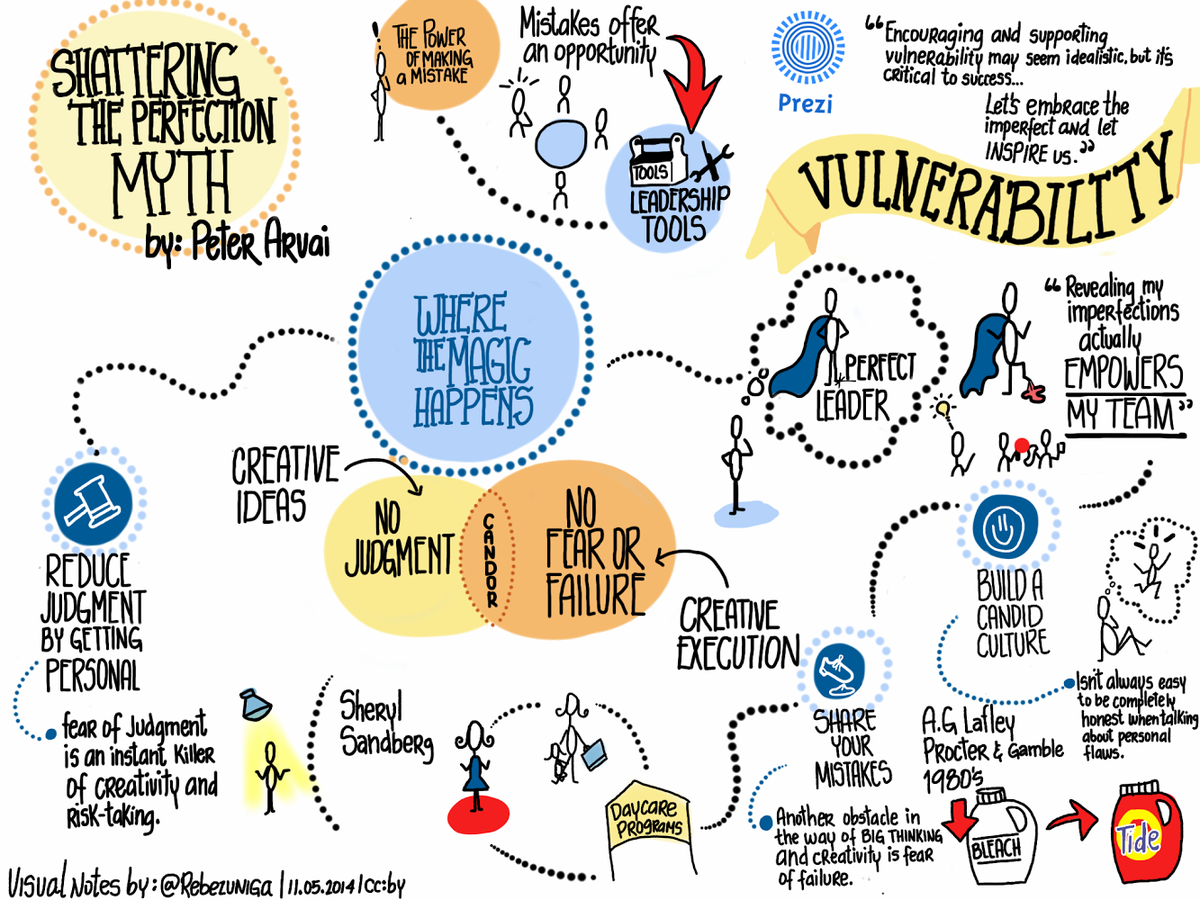 SHATTERING
THE PERFECTION
MYTH
by: Peter Arvai
THE POWER
OF MAKING
a MISTAKE
Mistakes offer
an opportunity
TOOLS
LEADERSHIP
TOOLS
Prezi
“Encouraging and supporting
vulnerability may seem idealistic, but it's
critical to success...
Let's embrace the
imperfect and let
INSPIRE us.”
VULNERABILITY
WHERE
THE MAGIC
HAPPENS
PERFECT
LEADER
“Revealing my
imperfections
actually
EMPOWERS
MY TEAM”
CREATIVE
IDEAS
NO
JUDGMENT
CANDOR
NO
FEAR OR
FAILURE
CREATIVE
EXECUTION
REDUCE
JUDGMENT
BY GETTING
PERSONAL
fear of Judgment
is an instant killer
of creativity and
risk-taking.
Sheryl
Sandberg
DAYCARE
PROGRAMS
SHARE
YOUR
MISTAKES
Another obstacle in
the way of BIG THINKING
and creativity is fear
of failure.
BUILD A
CANDID
CULTURE
Isn't always easy
to be completely
honest when talking
about personal
flaws.
A.G Lafley
Procter & Gamble
1980's
BLEACH
Tide
Visual Notes by: @Rebezuniga | 11.05.2014 | CC:by